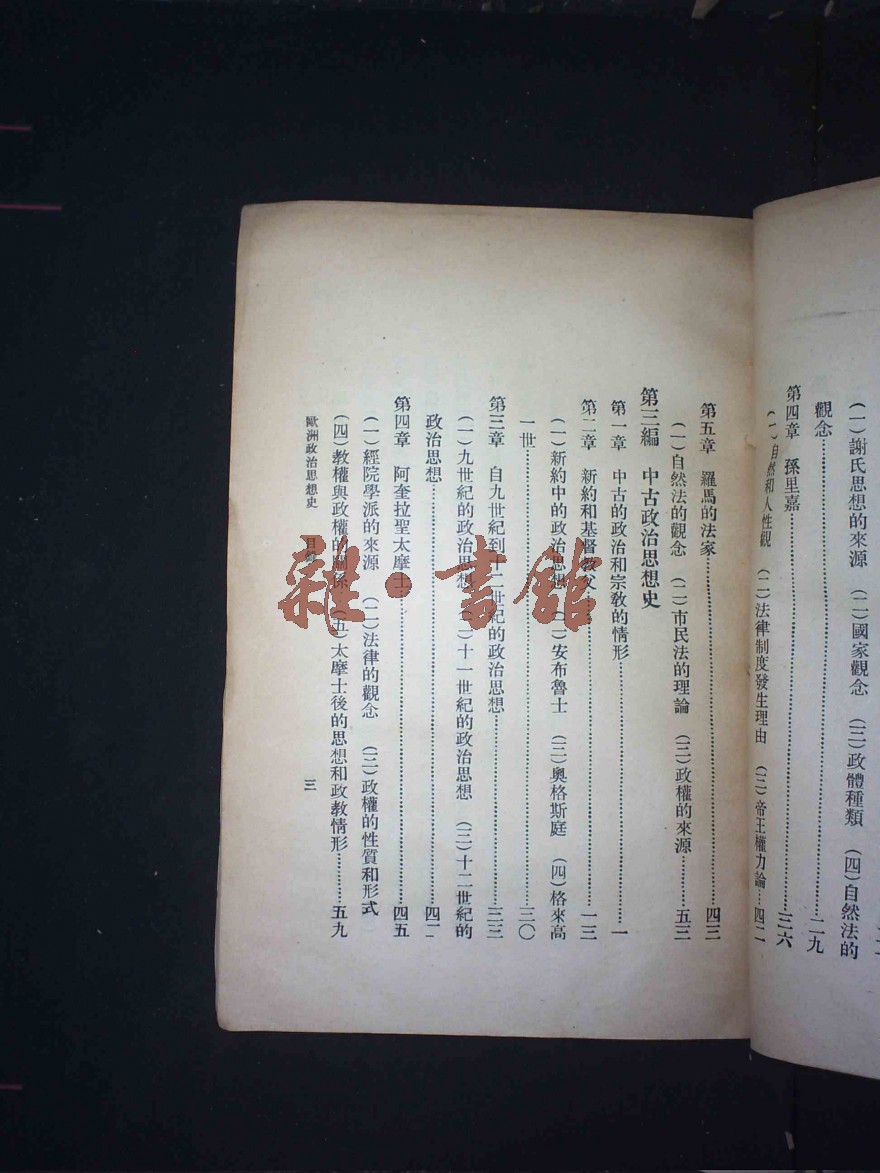 (一)謝氏思想的來源 (二)國家觀念 (三)政體種類 (四)自然法的
觀念……二九
第四章 孫里嘉……三六
(一)自然和人性觀 (二)法律制度發生理由 (三)帝王權力論……四二
第五章 羅馬的法家……四三
(一)自然法的觀念 (二)市民法的理論 (三)政權的來源……五三
第三編 中古政治思想史
第一章 中古的政治和宗教的情形……一
第二章 新約和基督教父……一三
(一)新約中的政治思想 (二)安布魯士 (三)奧格斯庭 (四)格來高
一世……三〇
第三章 自九世紀到十二世紀的政治思想……三三
(一)九世紀的政治思想 (二)十一世紀的政治思想 (三)十二世紀的
政治思想……四二
第四章 阿奎拉聖太摩士……四五
(一)經院學派的來源 (二)法律的觀念 (三)政權的性質和形式
(四)教權與政權的關係 (五)太摩士後的思想和政教情形……五九
歐洲政治思想史 目錄 三
雜·書館